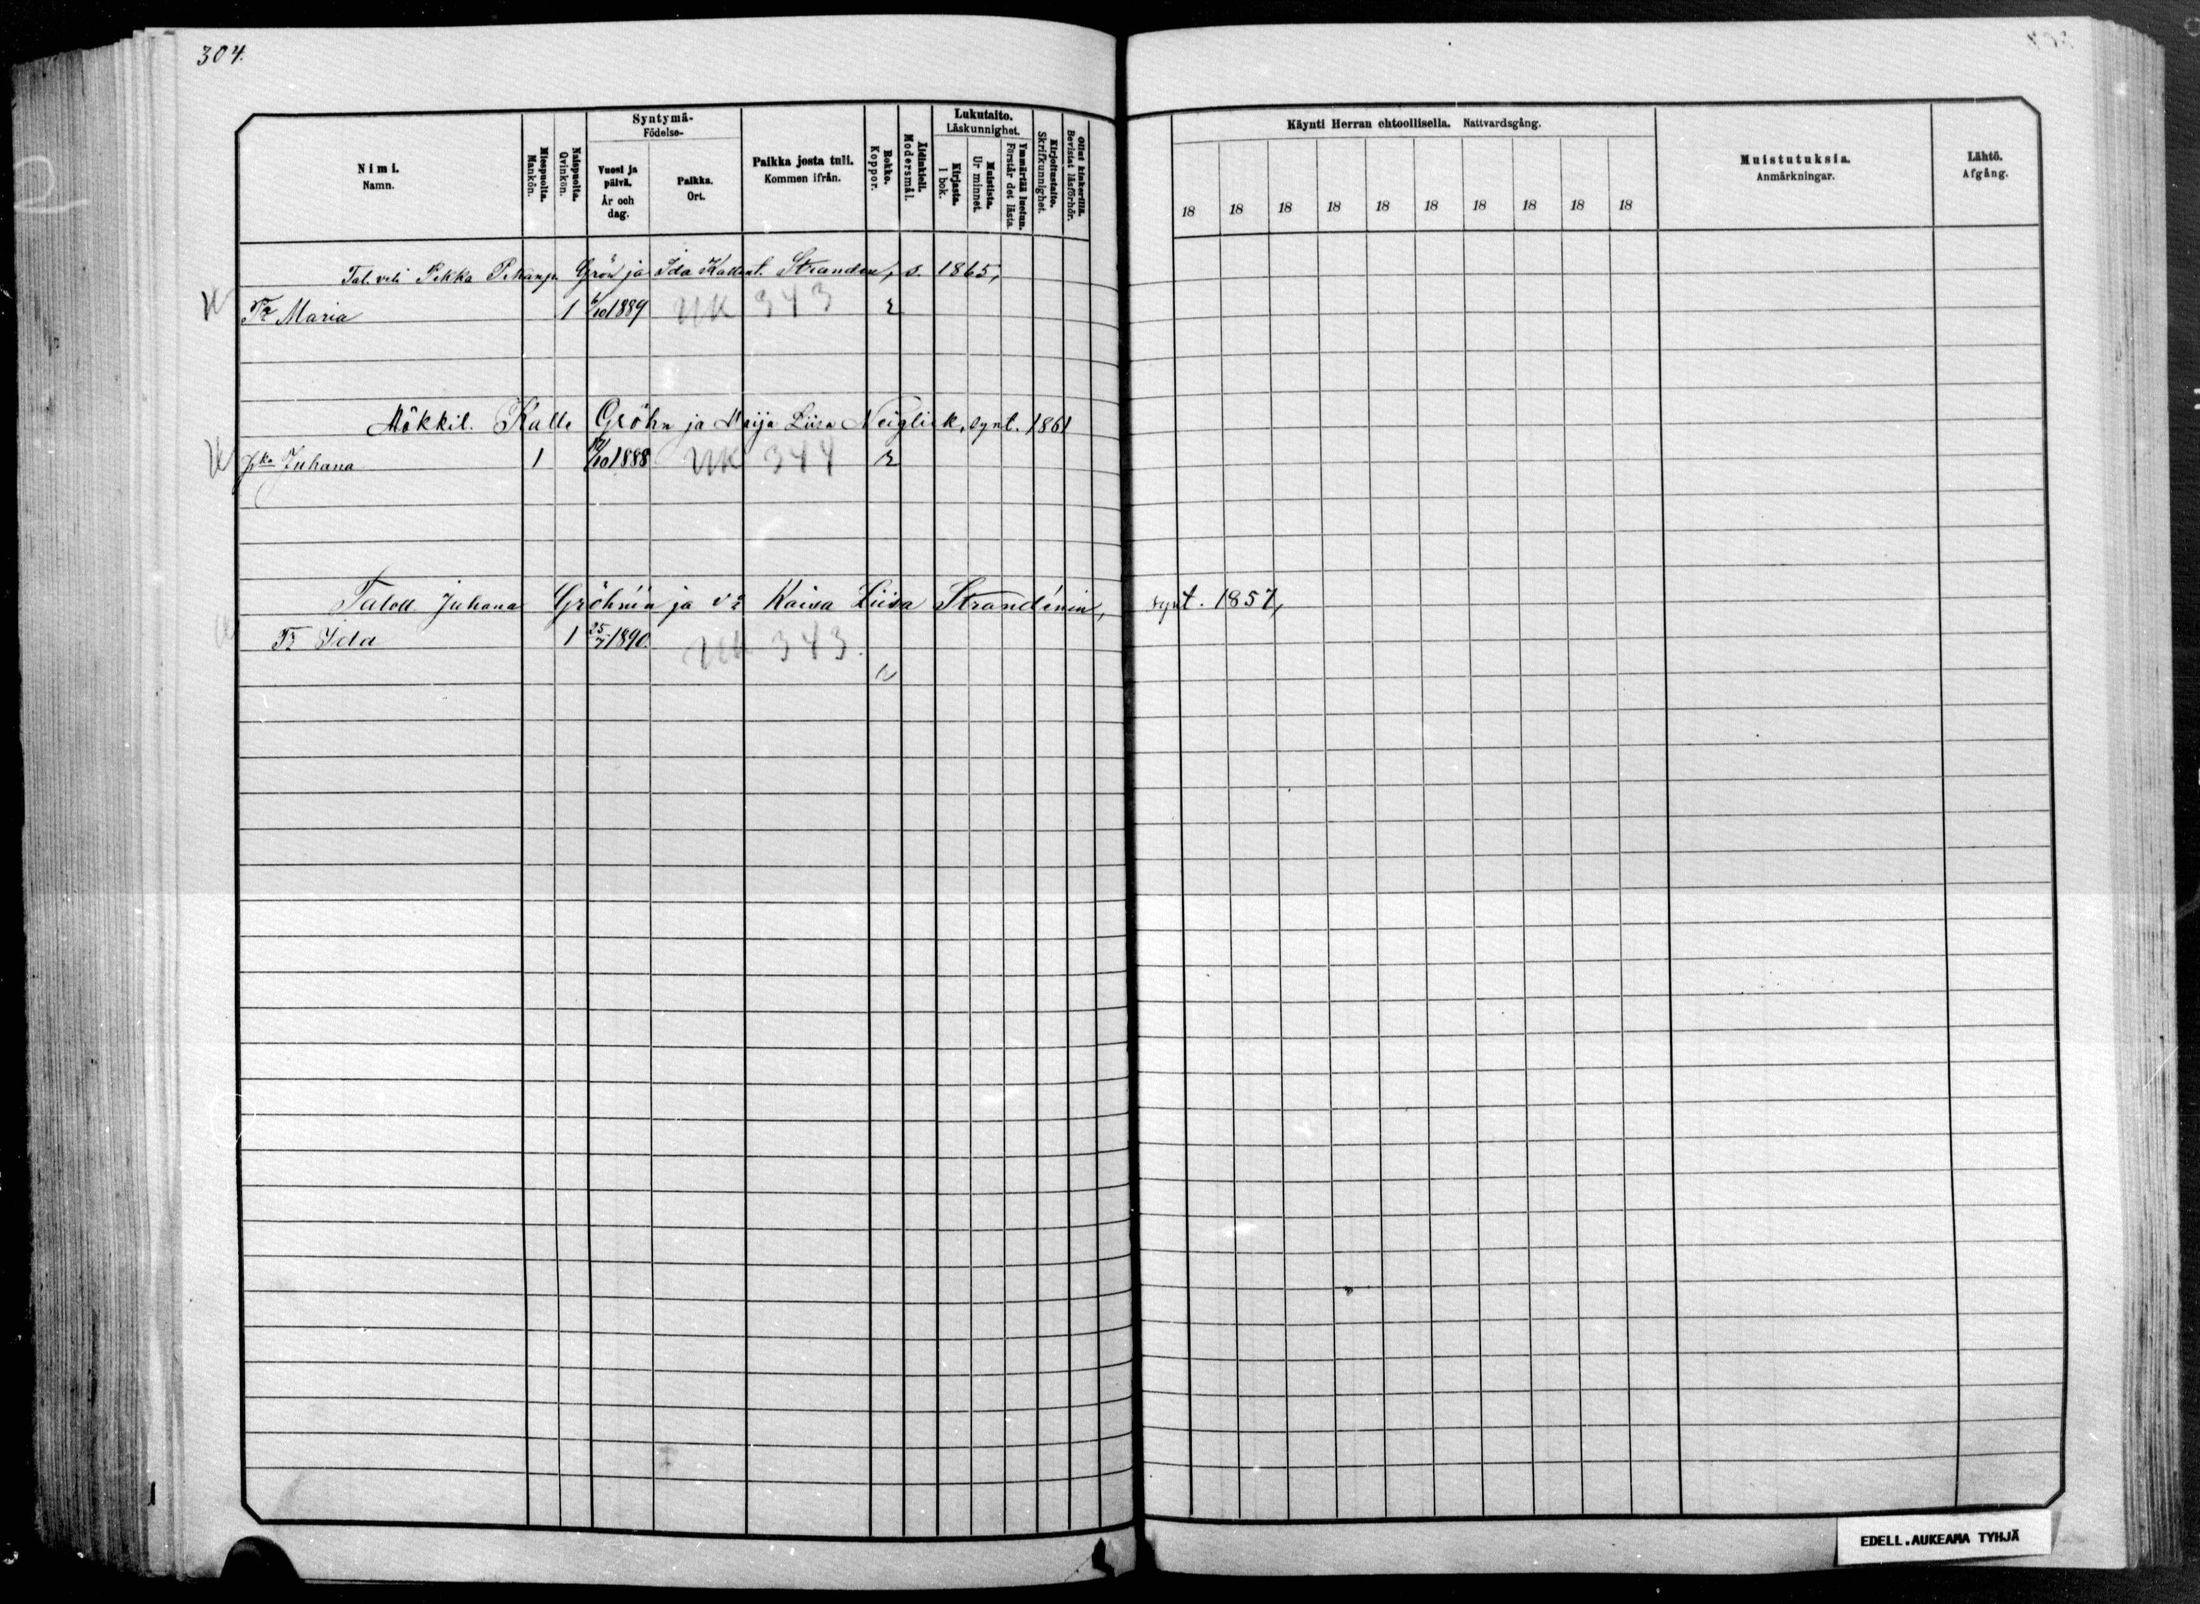 304.
Nimi.
Namn.
Miespuolta.
Mankön.
Naispuolta.
Qvinkön.
Syntymä-
Födelse-
Vuosi ja
päivä.
År och
dag.
Paikka.
Ort.
Paikka josta tuli.
Kommen ifrån.
Rokko.
Koppor.
Äidinkieli.
Modersmål.
Lukutaito.
Läskunnighet.
Kirjasta.
I bok.
Muistista.
Ur minnet.
Ymmärtää luetun.
Förstår det lästa.
Kirjoitustaito.
Skrifkunnighet.
Ollut kinkerillä.
Bevistat läsförhör.
Käynti Herran ehtoollisella. Nattvardsgång.
18 18 18 18 18 18 18 18 18 18
Muistutuksia.
Anmärkningar.
Lähtö.
Afgång.
Tal. veli Pekka Pekanp. Grön ja Ida Kallent. Stranden, s. 1865,
Tr Maria 1 6/10 1889 UK 343 r
Mökkil. Kalle Gröhn ja Maija Liisa Neiglick, synt. 1861
pka Juhana 1 /10 1888 UK 344 r
Talod Juhana Gröhnin ja vr Kaisa Liisa Strandénin, synt. 1857,
Tr Ida 1 25/7 1890. UK 343.
EDELL.AUKEAMA TYHJÄ